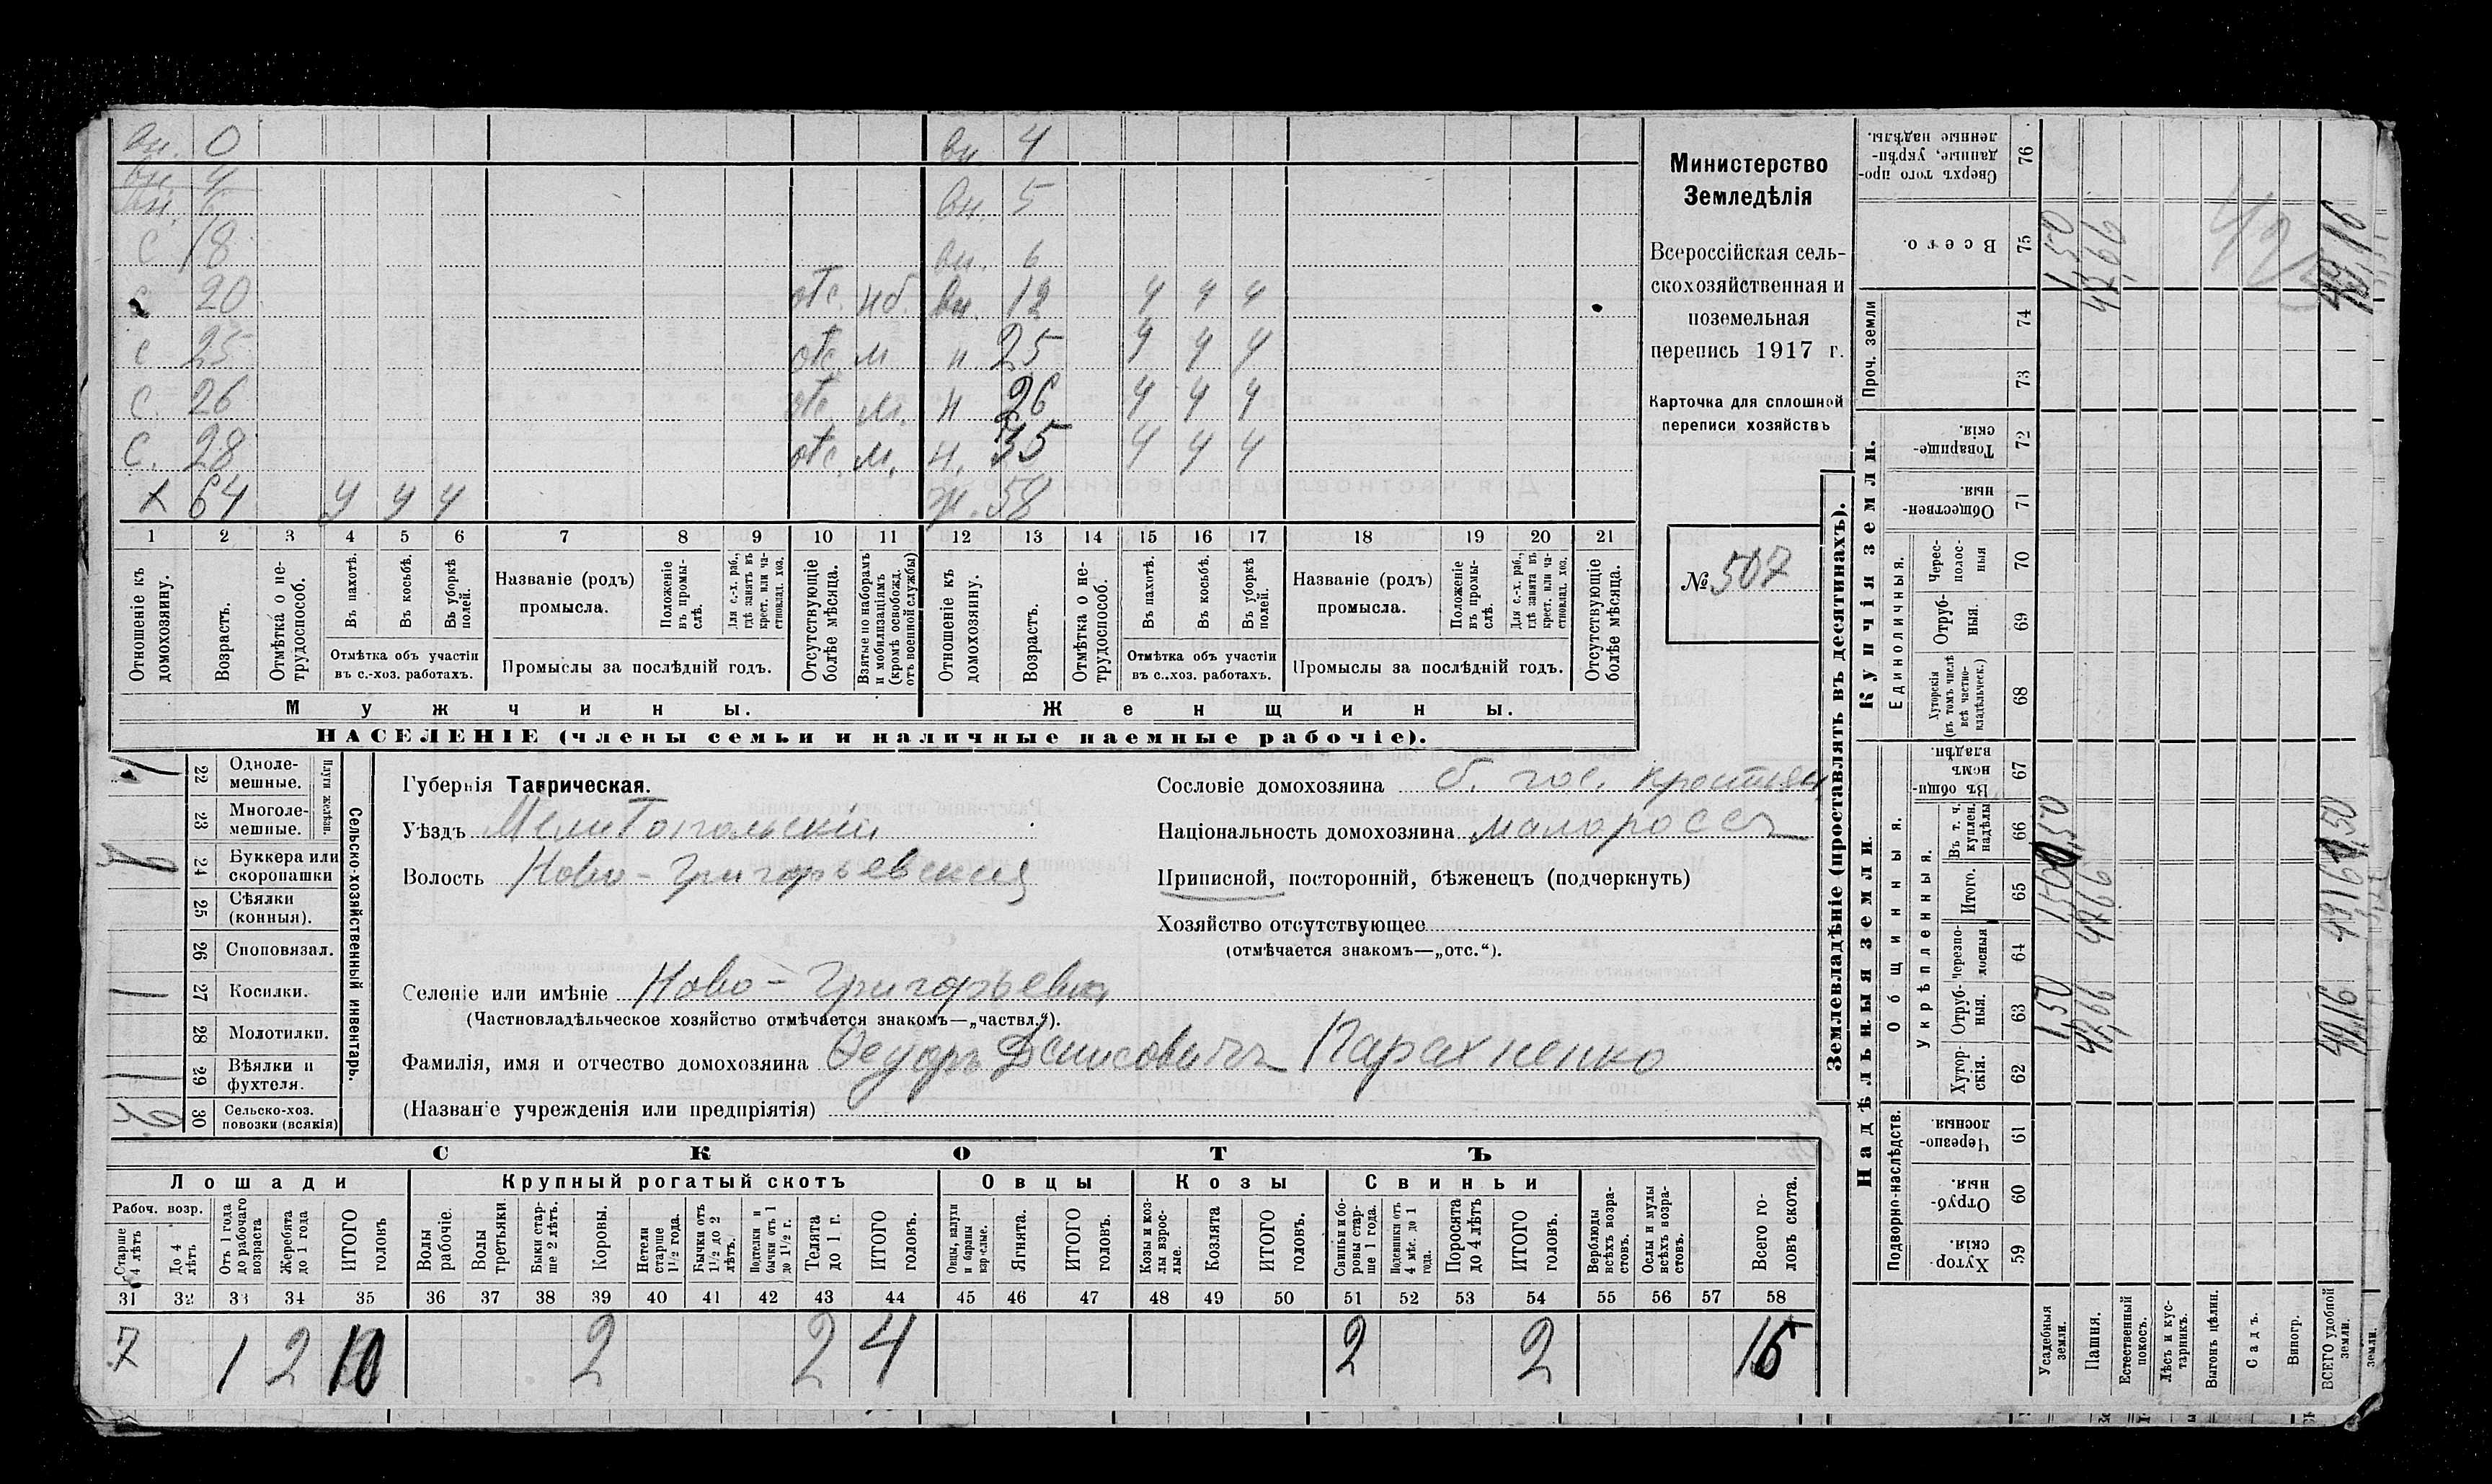 вн. 0 вн. 4
вн. 4
вн. 6 вн. 5
с 18 вн. 6
с 20 отс. нб. вн. 12 ч ч ч
с 25 отс. м н 25 ч ч ч
с. 26 отс. м. н 26 ч ч ч
с. 28 отс. м. н. 35 ч ч ч
х 64 у у у ж. 58
1 2 3 4 5 6 7 8 9 10 11 12 13 14 15 16 17 18 19 20 21
Отношеніе къ домохозяину.
Возрастъ.
Отмѣтка о нетрудоспособ.
Въ пахотѣ.
Въ косьбѣ.
Въ уборкѣ полей.
Отмѣтка объ участіи
въ с.-хоз. работахъ.
Названіе (родъ)
промысла.
Положеніе въ промыслѣ.
Для с.-х. раб., гдѣ занятъ въ крест. или частновлад. хоз.
Промыслы за послѣдній годъ.
Отсутствующіе болѣе мѣсяца.
Взятые по наборамъ и мобилизаціямъ (кромѣ освобожд. отъ военной службы)
Отношеніе къ домохозяину.
Возрастъ.
Отмѣтка о нетрудоспособ.
Въ пахотѣ.
Въ косьбѣ.
Въ уборкѣ полей.
Отмѣтка объ участіи
въ с..хоз. работахъ.
Названіе (родъ)
промысла.
Положеніе въ промыслѣ.
Для с.-х. раб., гдѣ занята въ крест. или частновлад. хоз.
Промыслы за послѣдній годъ.
Отсутствующіе болѣе мѣсяца.
Мужчины. Женщины.
НАСЕЛЕНІЕ (члены семьи и наличные наемные рабочіе).
Министерство
Земледѣлія
Всероссійская сель-
скохозяйственная и
поземельная
перепись 1917 г.
Карточка для сплошной
переписи хозяйствъ
№ 507
Сельско-хозяйственный инвентарь.
Плуги желѣзн.
1 22 Одноле-
мешные.
23 Многоле-
мешные.
1 24 Буккера или
скоропашки
25 Сѣялки
(конныя).
26 Споповязал.
1 27 Косилки.
28 Молотилки.
1 29 Вѣялки и
фухтеля.
2 30 Сельско-хоз.
повозки (всякія)
Губернія Таврическая.
Уѣздъ Мелитопольскій
Волость Ново-Григорьевская
Селеніе или имѣніе Ново-Григорьевка
(Частновладѣльческое хозяйство отмѣчается знакомъ—„частвл.“).
Фамилія, имя и отчество домохозяина Ѳедоръ Денисовичъ Парахненко
(Названіе учрежденія или предпріятія)
Сословіе домохозяина б. гос. крестьян
Національность домохозяина малороссъ
Приписной, посторонній, бѣженецъ (подчеркнуть)
Хозяйство отсутствующее
(отмѣчается знакомъ—„отс.“).
СКОТЪ
Лошади Крупный рогатый скотъ Овцы Козы Свиньи
Рабоч. возр.
Старше 4 лѣтъ
До 4 лѣтъ
Отъ 1 года до рабочаго возраста
Жеребята до 1 года
ИТОГО головъ
Волы рабочіе.
Волы третьяки.
Быки старше 2 лѣтъ.
Коровы.
Нетели старше 1½ года.
Бычки отъ 1½ до 2 лѣтъ.
Подтелки и бычки отъ 1 до 1½ г.
Телята до 1 г.
ИТОГО головъ.
Овцы, валухи и бараны взрослые.
Ягнята.
ИТОГО головъ.
Козы и козлы взрослые.
Козлята
ИТОГО головъ.
Свиньи и боровы старше 1 года.
Подсвинки отъ 4 мѣс. до 1 года.
Поросята до 4 лѣтъ
ИТОГО головъ.
Верблюды всѣхъ возрастовъ.
Ослы и мулы всѣхъ возрастовъ.
Всего головъ скота.
31 32 33 34 35 36 37 38 39 40 41 42 43 44 45 46 47 48 49 50 51 52 53 54 55 56 57 58
7 1 2 10 2 2 4 2 2 16
Землевладѣніе (проставлять въ десятинахъ).
Надѣльныя земли.
Подворно-наслѣдств.
Хуторскія 59
Отрубныя. 60
Черезполосныя. 61
Общинныя.
Укрѣпленныя.
Хуторскія. 62
Отрубныя. 63
Черезполосныя 64
Итого. 65
Въ т. ч. куплен. надѣлы 66
Въ общинномъ владѣн. 67
Купчія земли.
Единоличныя.
Хуторскія (въ томъ числѣ всѣ частновладѣльческ.) 68
Отрубныя. 69
Черезполосныя 70
Общественныя. 71
Товарищескія. 72
Проч. земли
73 74
Всего. 75
Сверхъ того проданные, укрѣпленные надѣлы. 76
Усадебныя земли. 1,50 1,50 1,50
Пашня. 47,66 47,66 47,66
Естественный покосъ.
Лѣсъ и кустарникъ.
Выгонъ цѣлин.
Садъ.
Виногр.
ВСЕГО удобной земли. 49,16 49,16 49,16
земли.